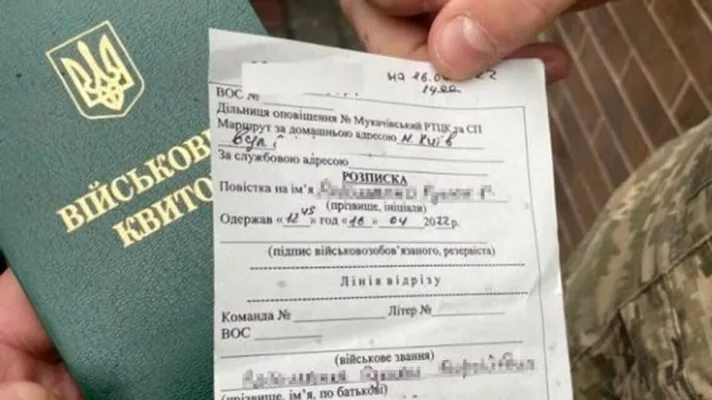 ВІЙСЬКОВ
КВИТО
на 16.0
1400
ВОС №
Дільниця оповіщення № Мукачівський РТЦК та СП
Маршрут за домашньою адресою м. Київ
Вул
За службовою адресою
РОЗПИСКА
Повістка на ім'я
(прізвище, ініціали)
Одержав «12 45» год «16» 04 2022р.
(підпис військовозобов'язаного, резервіста)
Лінія відрізу
Команда № Літер №
ВОС
(військове звання)
(прізвище, ім'я, по батькові)